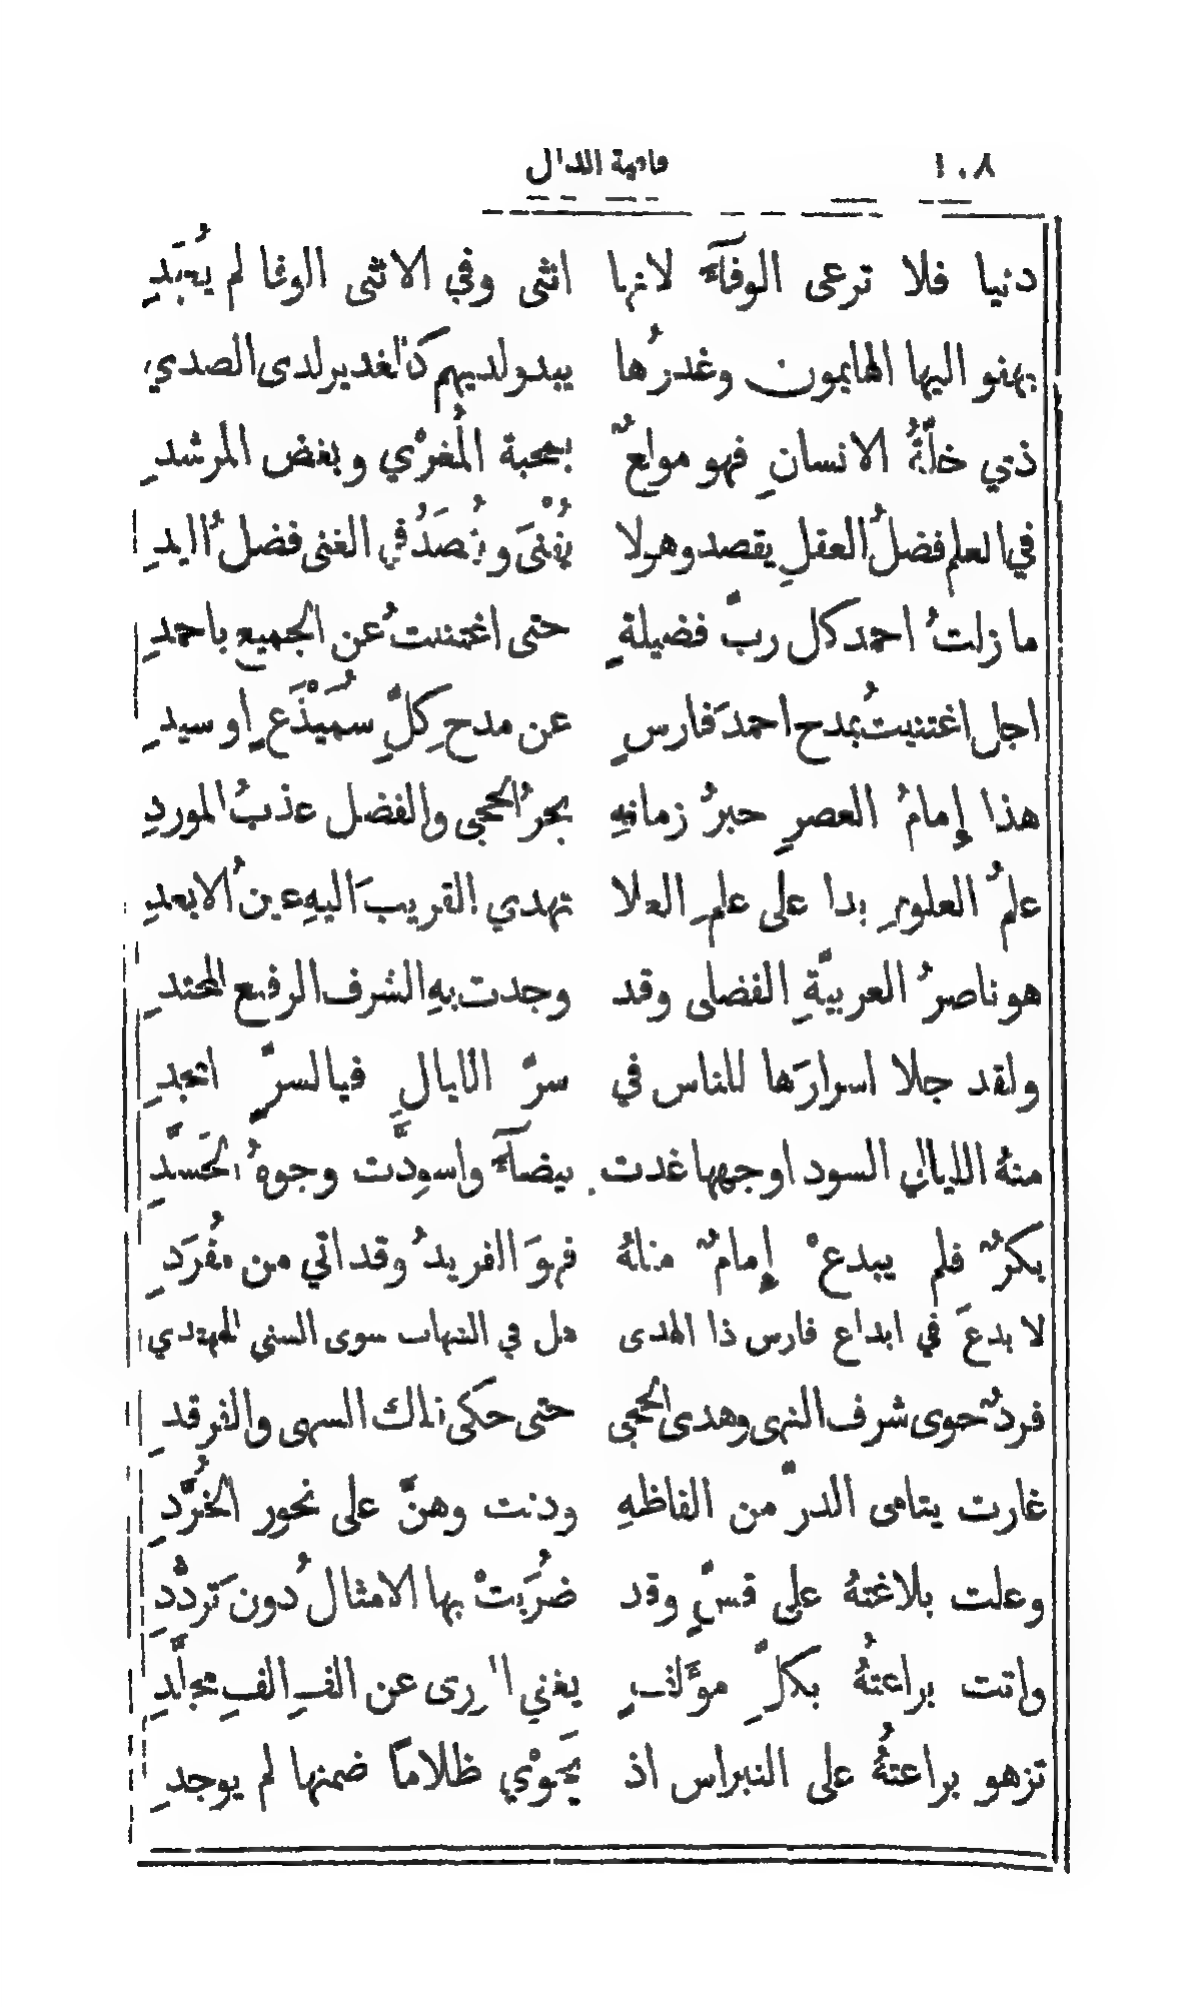 ١٠٨ قافية الدال
دنيا فلا ترعى الوفآءَ لانها انثى وفي الانثى الوفا لم يُعهَدِ
يهفو اليها الهايمون وغدرُها يبدو لديهم كالغدير لدى الصدي
ذي خلَّةُ الانسانِ فهو مولعٌ بمحبة المُغرْي وبغض المرشدِ
في العلم فضلُ العقلِ يقصد وهو لا يُفْنىَ ويُقصَدُ في الغنى فضلُ اليدِ
ما زلتُ احمد كل ربّ فضيلةٍ حتى اغتنيتُ عن الجميع باحمدِ
اجل اغتنيتُ بمدح احمدَ فارسٍ عن مدح كِلِّ سُمَيْذَعٍ او سيدِ
هذا إِمامُ العصرِ حبرُ زمانهِ بحرُ الحجى والفضل عذبُ الموردِ
علمُ العلومِ بدا على علمِ العلا تهدي القريبَ اليهِ عينُ الابعدِ
هو ناصرُ العربيَّةِ الفضلى وقد وجدت بهِ الشرف الرفيع المحتدِ
ولقد جلا اسرارَها للناس في سرّ الليالِ فيا لسرٍّ اتجدِ
منهُ الليالي السود اوجهها غدت بيضآءَ واسودَّت وجوهُ الحَسَّدِ
بكرٌ فلم يبدعْ إِمامٌ مثلهُ فهوَ الفريدُ وقد اتي من مفُرَدِ
لا بدعَ في ابداع فارس ذا الهدى هل في الشهاب سوى السني المهتدي
فردٌ حوى شرف النهى وهدى الحجى حتى حكى ذلك السهى والفرقدِ
غارت يتامى الدرّ من الفاظهِ ودنت وهنَّ على نحور الخُرَّدِ
وعلت بلاغتهُ على قسٍّ وقد ضُرَبتْ بها الامثالُ دونَ تردُّدِ
واتت براعتهُ بكلِّ مؤَلفٍ يغني الورى عن الفِ الفِ مجلَّدِ
تزهو براعتهُ على النبراس اذ يَحِوْي ظلامًا ضمنها لم يوجدِ